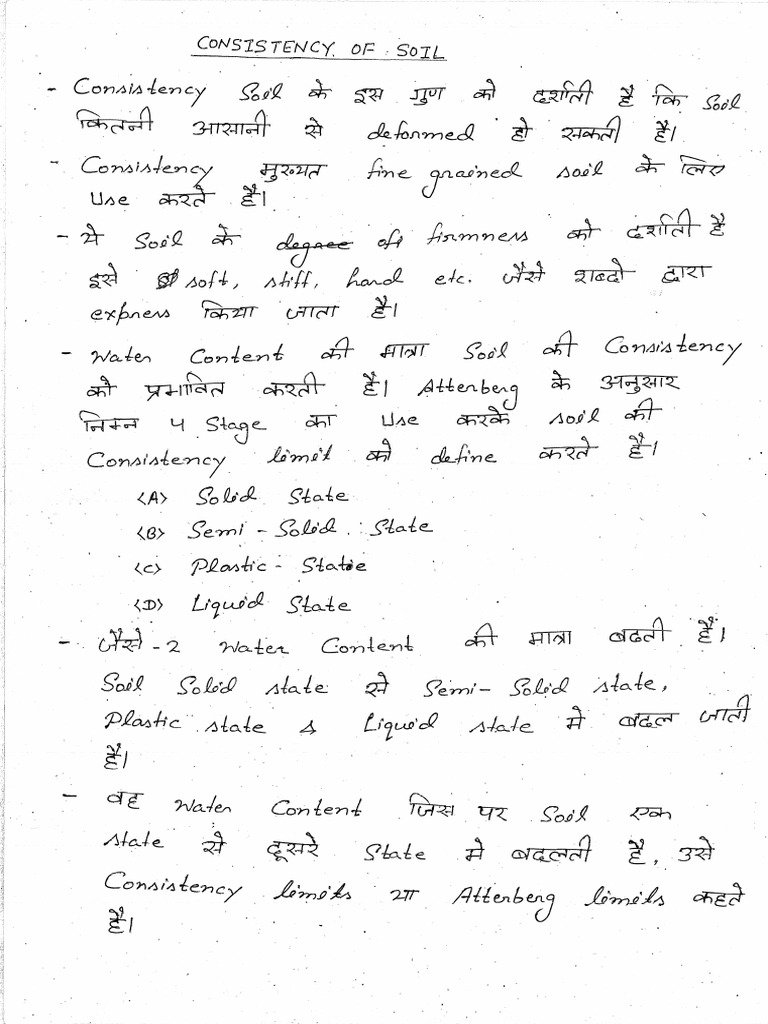 CONSISTENCY OF SOIL
- Consistency Soil के इस गुण को दर्शाती है कि Soil
कितनी आसानी से deformed हो सकती है।
- Consistency मुख्यत fine grained soil के लिए
Use करते है।
- ये Soil के degree of firmness को दर्शाती है
इसे soft, stiff, hard etc. जैसे शब्दो द्वारा
express किया जाता है।
- Water Content की मात्रा Soil की Consistency
को प्रभावित करती है। Atterberg के अनुसार
निम्न 4 Stage का Use करके soil की
Consistency limit को define करते है।
<A> Solid State
<B> Semi-Solid State
<C> Plastic-State
<D> Liquid State
- जैसे-2 Water Content की मात्रा बढती है।
Soil Solid state से Semi-Solid state,
Plastic state & Liquid state मे बदल जाती
है।
- वह Water Content जिस पर Soil एक
state से दूसरे State मे बदलती है, उसे
Consistency limits या Atterberg limits कहते
है।